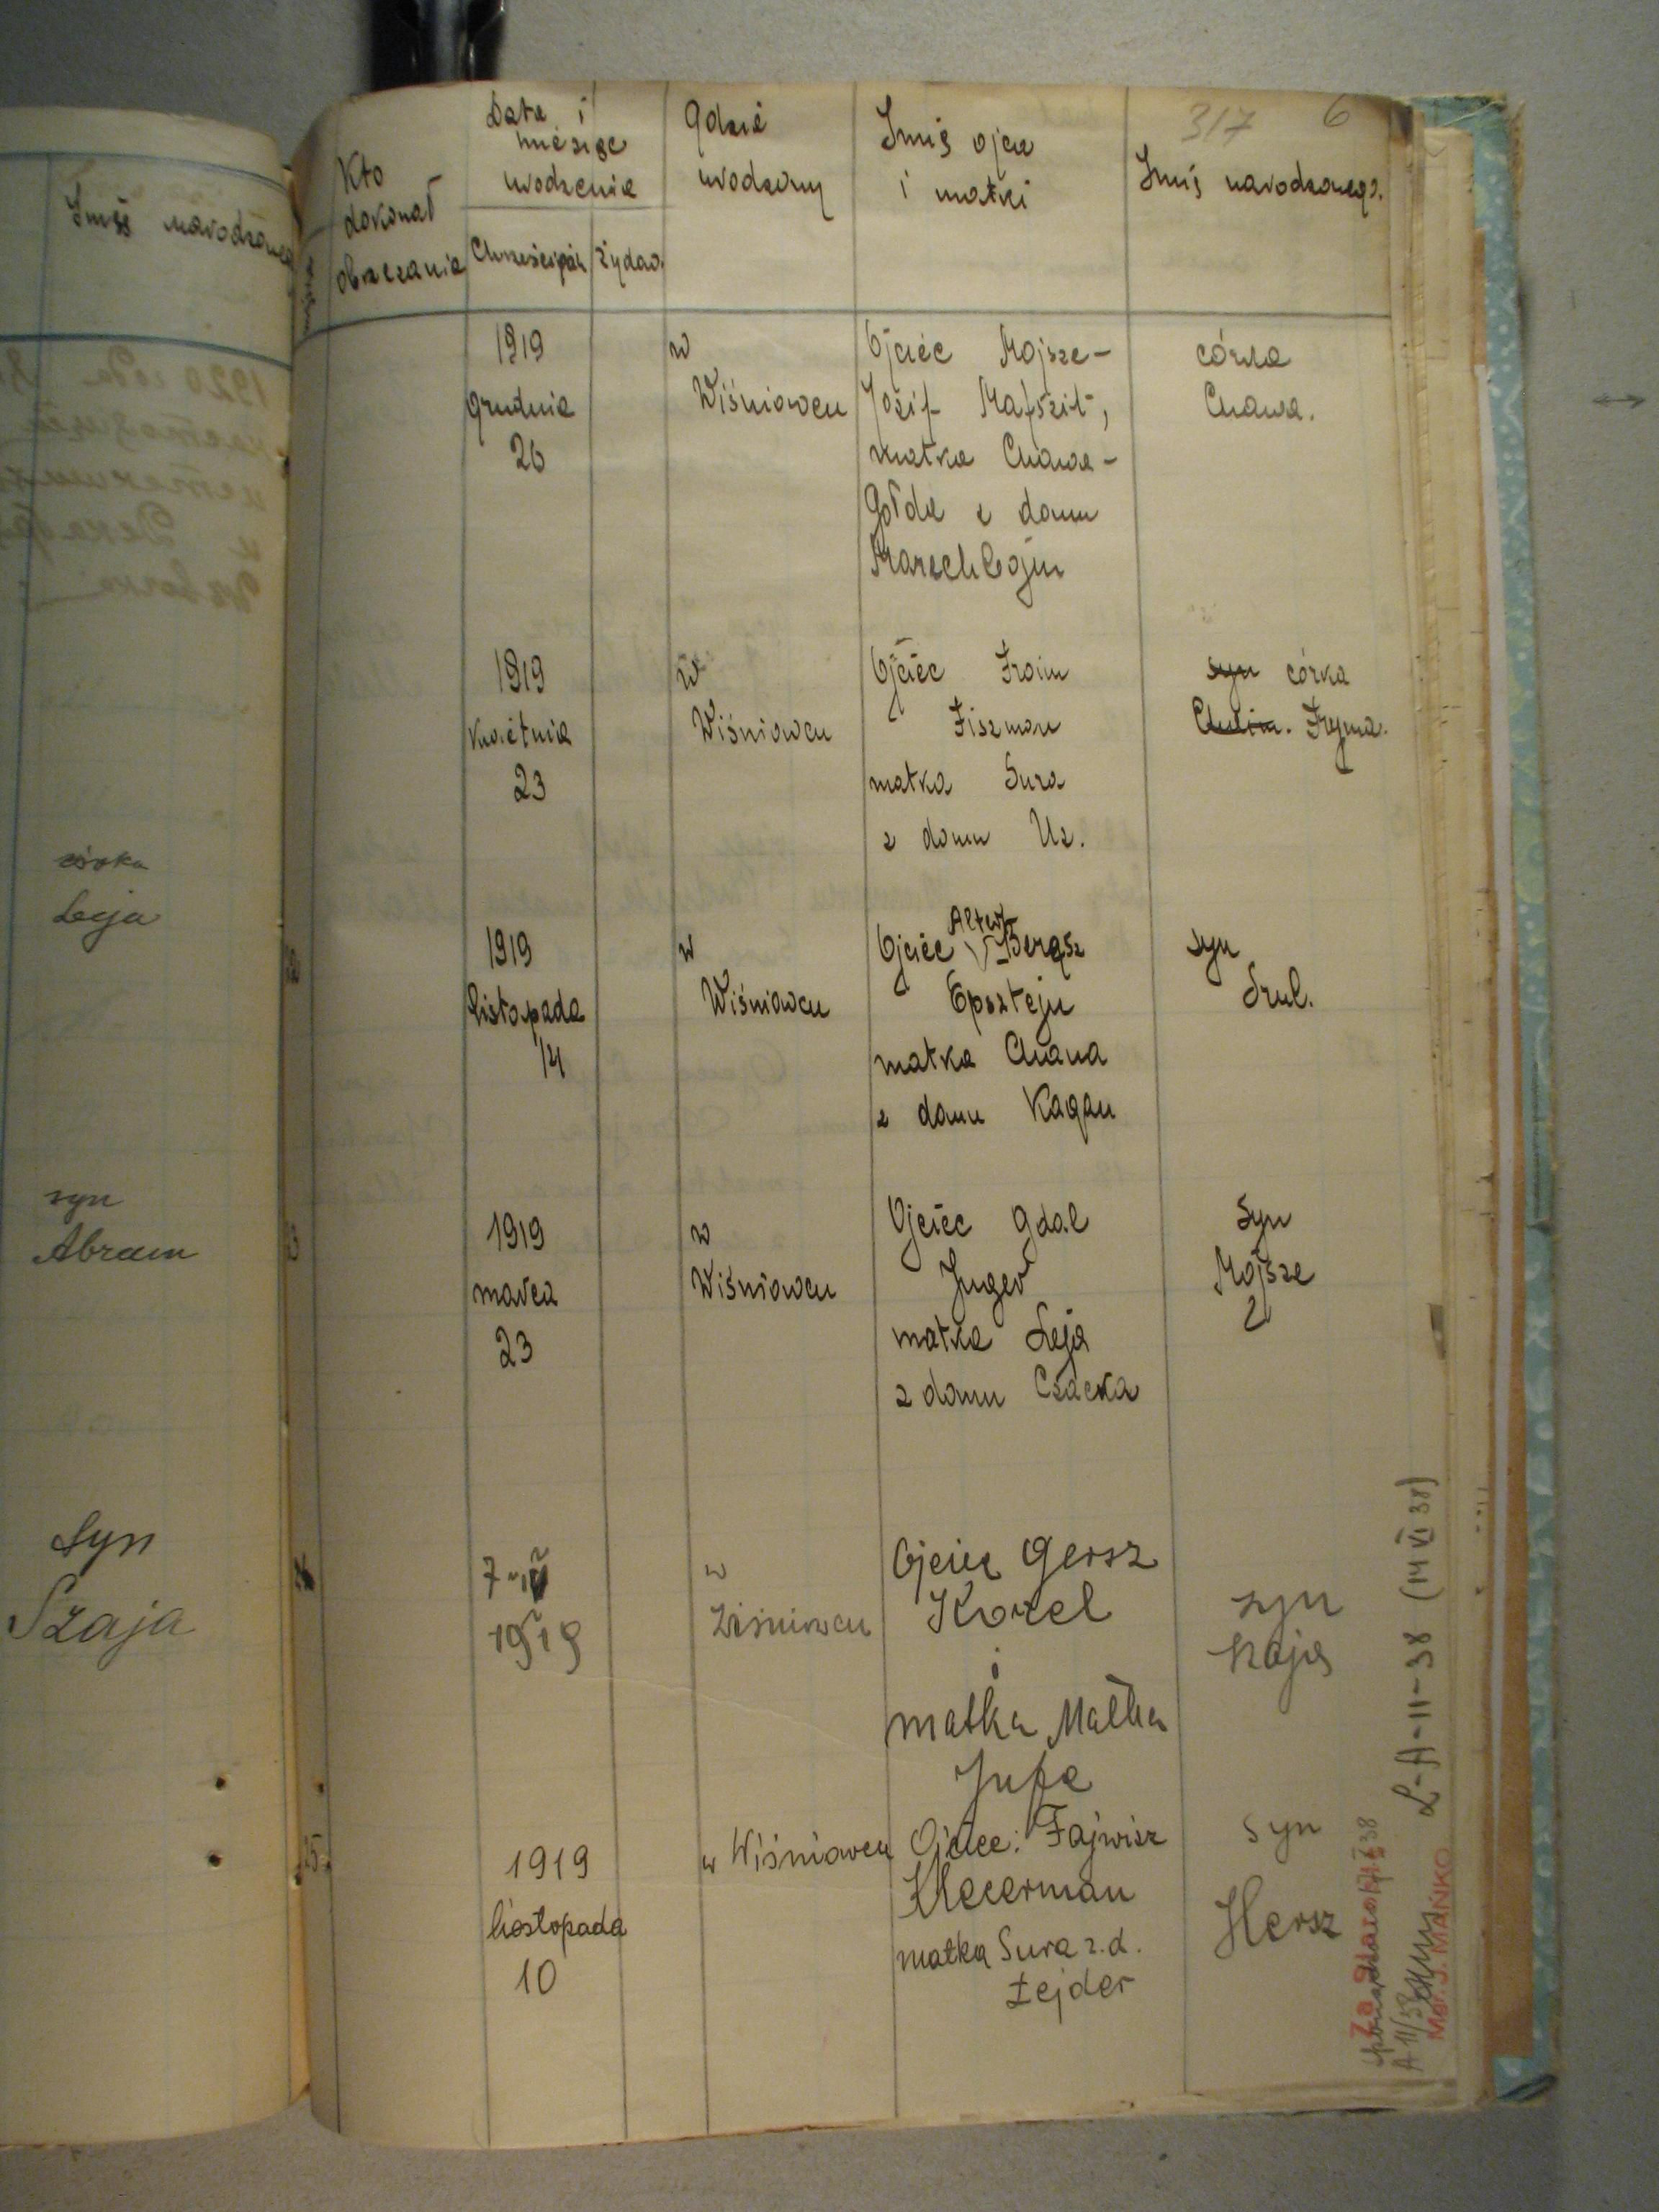 Imię narodzonego
córka
Leja
syn
Abram
Syn
Szaja
317 6
Kto
dokonał
obrzezania
Data i
miesiąc
urodzenia
Chrześcijań
Żydow.
Gdzie
urodzony
Imię ojca
i matki
Imię narodzonego.
1919
grudnia
26
w
Wiśniowcu
Ojciec Mojsze-
Józif Mafszit,
matka Chawa-
Gołda z domu
córka
Chawa.
1919
kwietnia
23
w
Wiśniowcu
Ojciec Froim
Fiszman
matka Sura
z domu Uz.
syn córka
Frejma.
1919
listopada
14
w
Wiśniowcu
Alter
Ojciec Berąsz
Epsztejn
matka Chana
z domu Kagan
syn
Srul.
1919
marca
23
w
Wiśniowcu
Ojciec Gdal
Juger
matka Leja
z domu Czacka
Syn
Mojsze
2
7-IV
1919
w
Wiśniowcu
Ojciec Gersz
Kozel
i
matka Malka
Jufa
syn
25
1919
listopada
10
w Wiśniowcu
Ojciec: Fajwisz
Klecerman
matka Sura z.d.
Łejder
syn
Hersz
L-A-11-38 (14 VI 38)
Mgr. J. MAŃKO